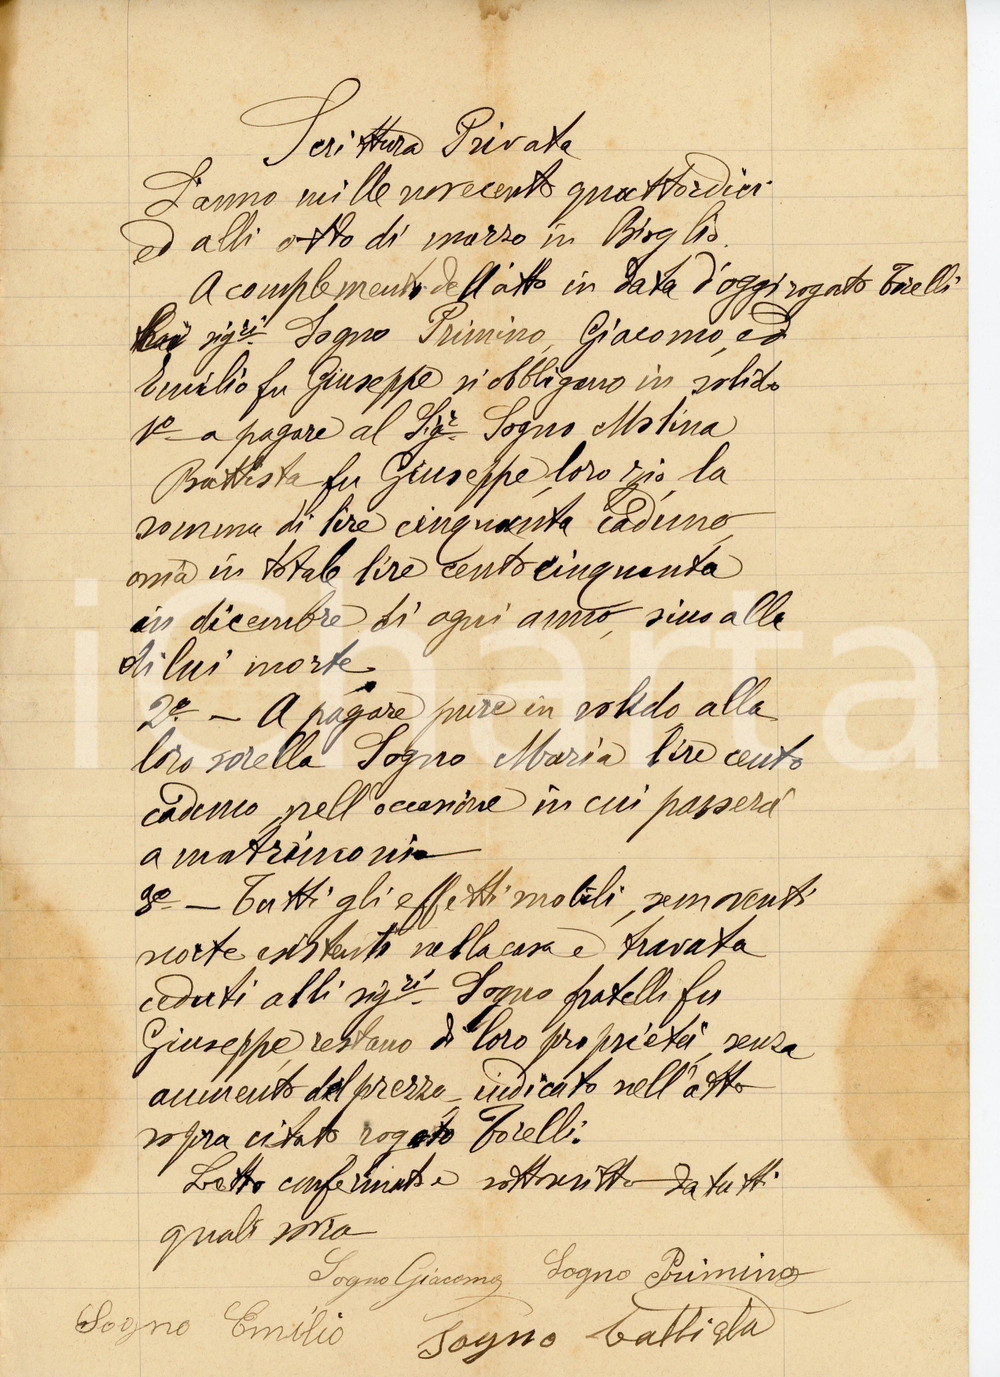 Scrittura Privata
L'anno mille novecento quattordici
ed alli otto di marzo in Bioglio.
A complemento dell'atto in data d'oggi rogato Torelli
sig.ri Sogno Primino, Giacomo, ed
Emilio fu Giuseppe si obbligano in solido
1° - a pagare al Sig.r Sogno Molina
Battista fu Giuseppe, loro zio, la
somma di lire cinquanta caduno
ossia in totale lire centocinquanta
in dicembre di ogni anno, sino alla
di lui morte.
2° - A pagare pure in solido alla
loro sorella Sogno Maria lire cento
caduno, nell'occasione in cui passerà
a matrimonio
3° - Tutti gli effetti mobili, semoventi
scorte esistenti nella casa e travata
ceduti alli sig.ri Sogno fratelli fu
Giuseppe restano di loro proprietà, senza
aumento del prezzo indicato nell'atto
sopra citato rogato Torelli.
Letto confermato e sottoscritto da tutti
quali sovra
Sogno Giacomo Sogno Primino
Sogno Emilio Sogno Battista
iCharta